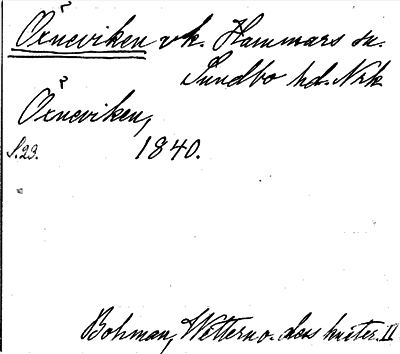 Oxneviken vk. Hammars sn.
Sundbo hd. Nrk
Oxneviken,
S.23. 1840.
Bohman, Wettern o. dess kuster. II